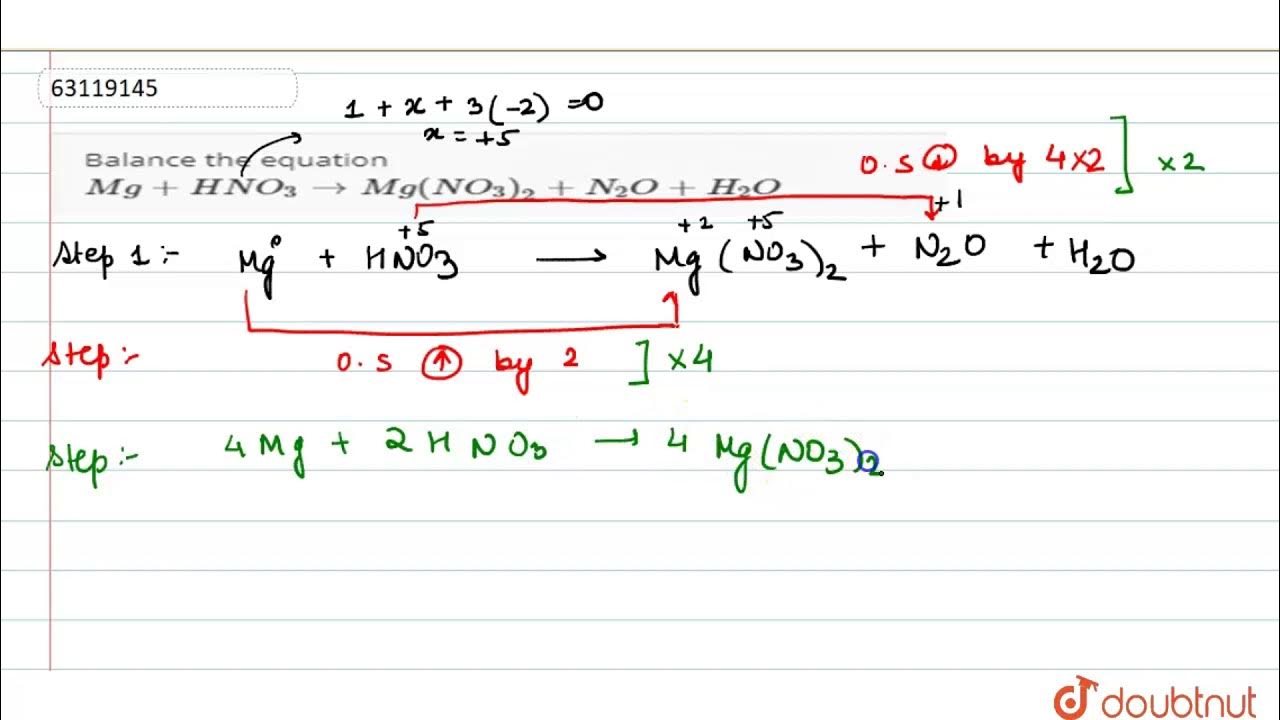 63119145
1 + x + 3(-2) =0
x = +5
Balance the equation
Mg + HNO₃ → Mg(NO₃)₂ + N₂O + H₂O
O.S ↓ by 4×2 ] ×2
+5 +2 +5 +1
Step 1:- Mg⁰ + HNO₃ → Mg(NO₃)₂ + N₂O + H₂O
Step:- O.S ↑ by 2 ] ×4
Step:- 4Mg + 2HNO₃ → 4 Mg(NO₃)₂
doubtnut